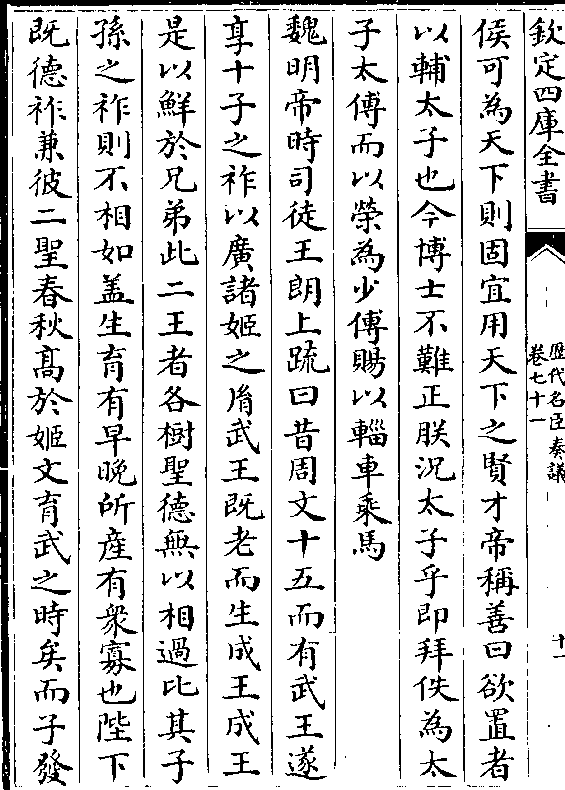 欽定四庫全書
歷代名臣奏議
卷七十一
十一
侯可為天下則固宜用天下之賢才帝稱善曰欲置者
以輔太子也今博士不難正朕況太子乎即拜佚為太
子太傅而以榮為少傅賜以輜車乘馬
魏明帝時司徒王朗上䟽曰昔周文十五而有武王遂
享十子之祚以廣諸姬之𦙍武王既老而生成王成王
是以鮮於兄弟此二王者各樹聖德無以相過比其子
孫之祚則不相如盖生育有早晚所産有衆寡也陛下
既德祚兼彼二聖春秋髙於姬文育武之時矣而子發